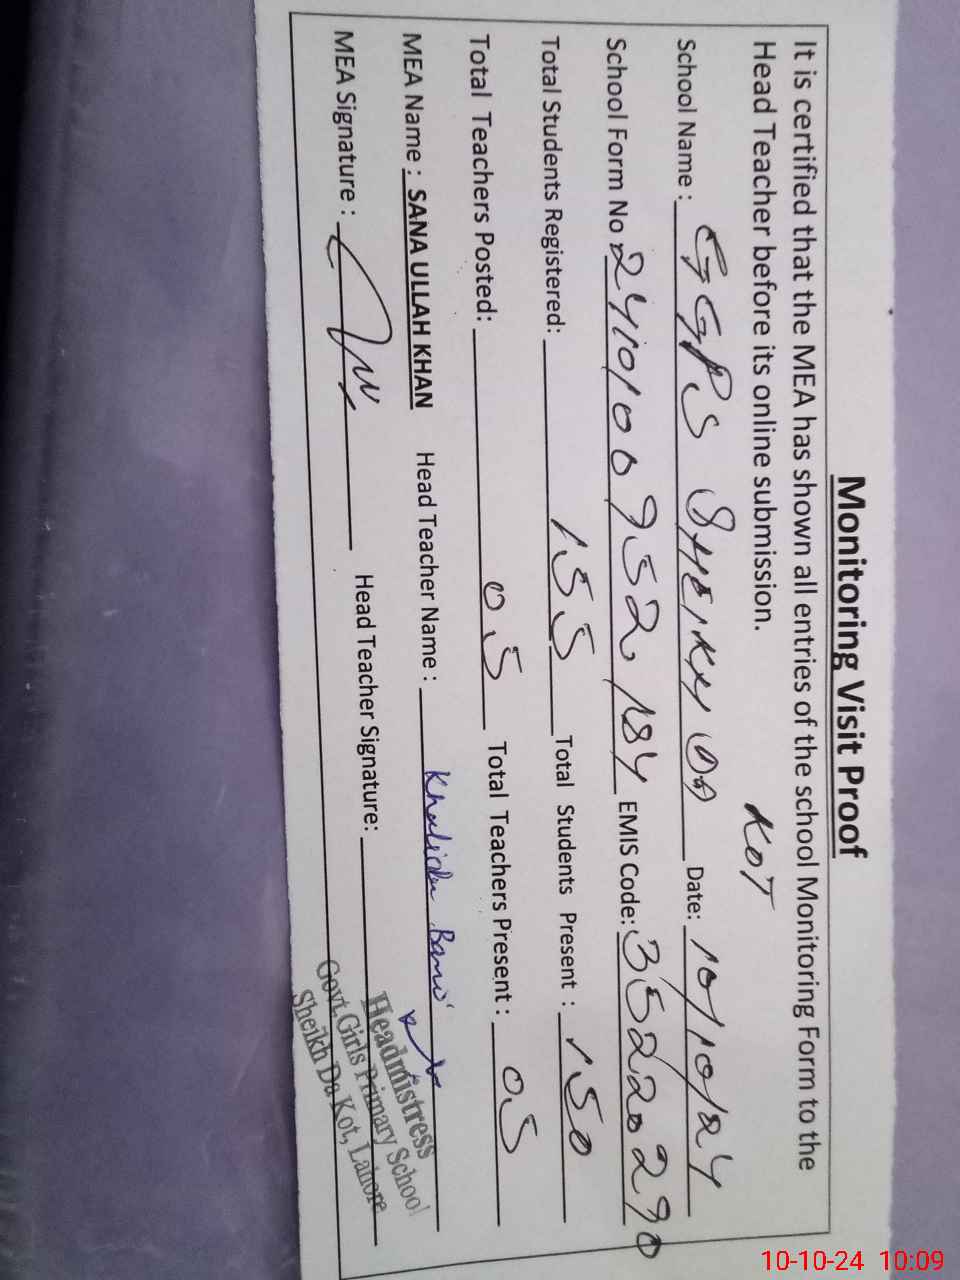 Monitoring Visit Proof
It is certified that the MEA has shown all entries of the school Monitoring Form to the
Head Teacher before its online submission. KOT
School Name : GGPS SHEIKH DA Date: 10/10/24
School Form No 2410100952184 EMIS Code: 35220290
Total Students Registered: 155 Total Students Present : 150
Total Teachers Posted: 05 Total Teachers Present : 05
MEA Name : SANA ULLAH KHAN Head Teacher Name : Khalida Bano
MEA Signature : Head Teacher Signature:
Headmistress
Govt. Girls Primary School
Sheikh Da Kot, Lahore
10-10-24 10:09